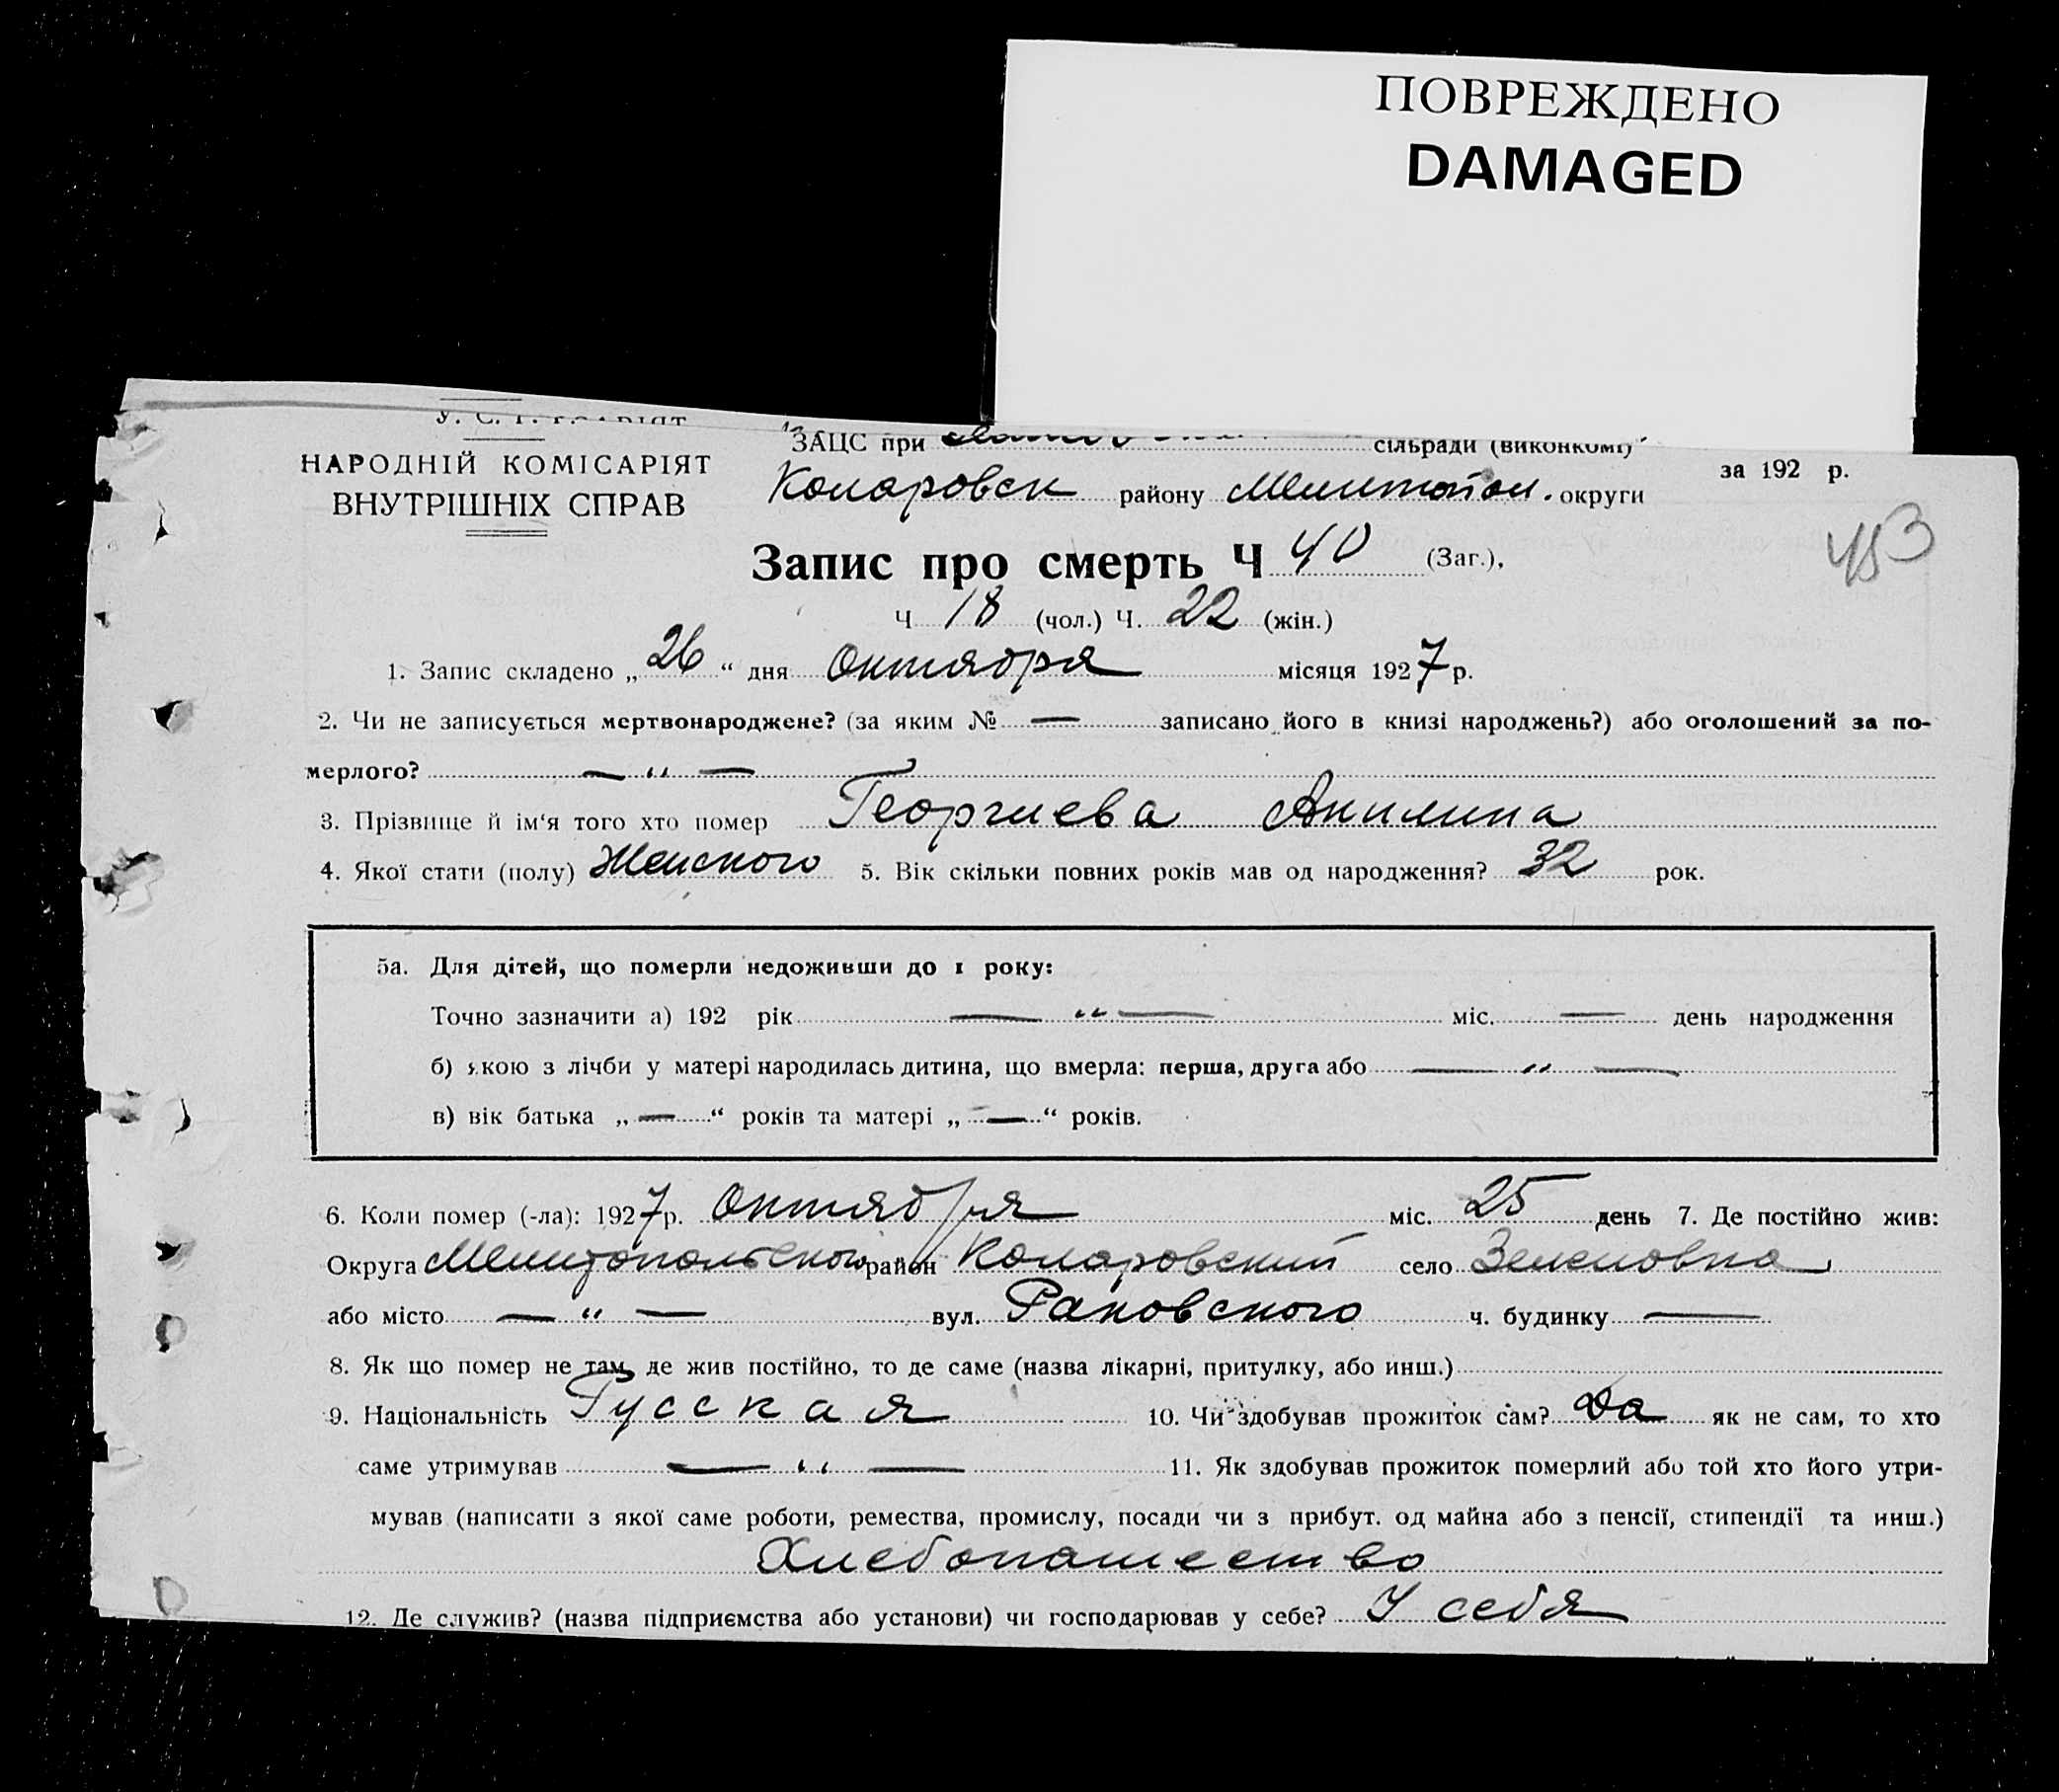 ПОВРЕЖДЕНО
DAMAGED
У. С. Р. Р.
НАРОДНІЙ КОМІСАРІЯТ
ВНУТРІШНІХ СПРАВ
ЗАЦС при сільради (виконкомі)
Коларовск району Мелитопол. округи
за 192 р.
Запис про смерть Ч 40 (Заг.),
453
Ч 18 (чол.) Ч. 22 (жін.)
1. Запис складено „ 26 “ дня Октября місяця 1927 р.
2. Чи не записується мертвонароджене? (за яким № — записано його в книзі народжень?) або оголошений за по-
мерлого? — " —
3. Прізвище й ім‘я того хто помер Георгиева Акилина
4. Якої стати (полу) Женского 5. Вік скільки повних років мав од народження? 32 рок.
5а. Для дітей, що померли недоживши до 1 року:
Точно зазначити а) 192 рік — " — міс. — день народження
б) якою з лічби у матері народилась дитина, що вмерла: перша, друга або — " —
в) вік батька „ — “ років та матері „ — “ років.
6. Коли помер (-ла): 1927 р. Октября міс. 25 день 7. Де постійно жив:
Округа Мелитопольского район Коларовский село Зеленовка
або місто — " — вул. Раковского ч. будинку —
8. Як що помер не там, де жив постійно, то де саме (назва лікарні, притулку, або инш.)
9. Національність Русская 10. Чи здобував прожиток сам? Да як не сам, то хто
саме утримував — " — 11. Як здобував прожиток померлий або той хто його утри-
мував (написати з якої саме роботи, ремества, промислу, посади чи з прибут. од майна або з пенсії, стипендії та инш.)
Хлебопашество
12. Де служив? (назва підприємства або установи) чи господарював у себе? У себя